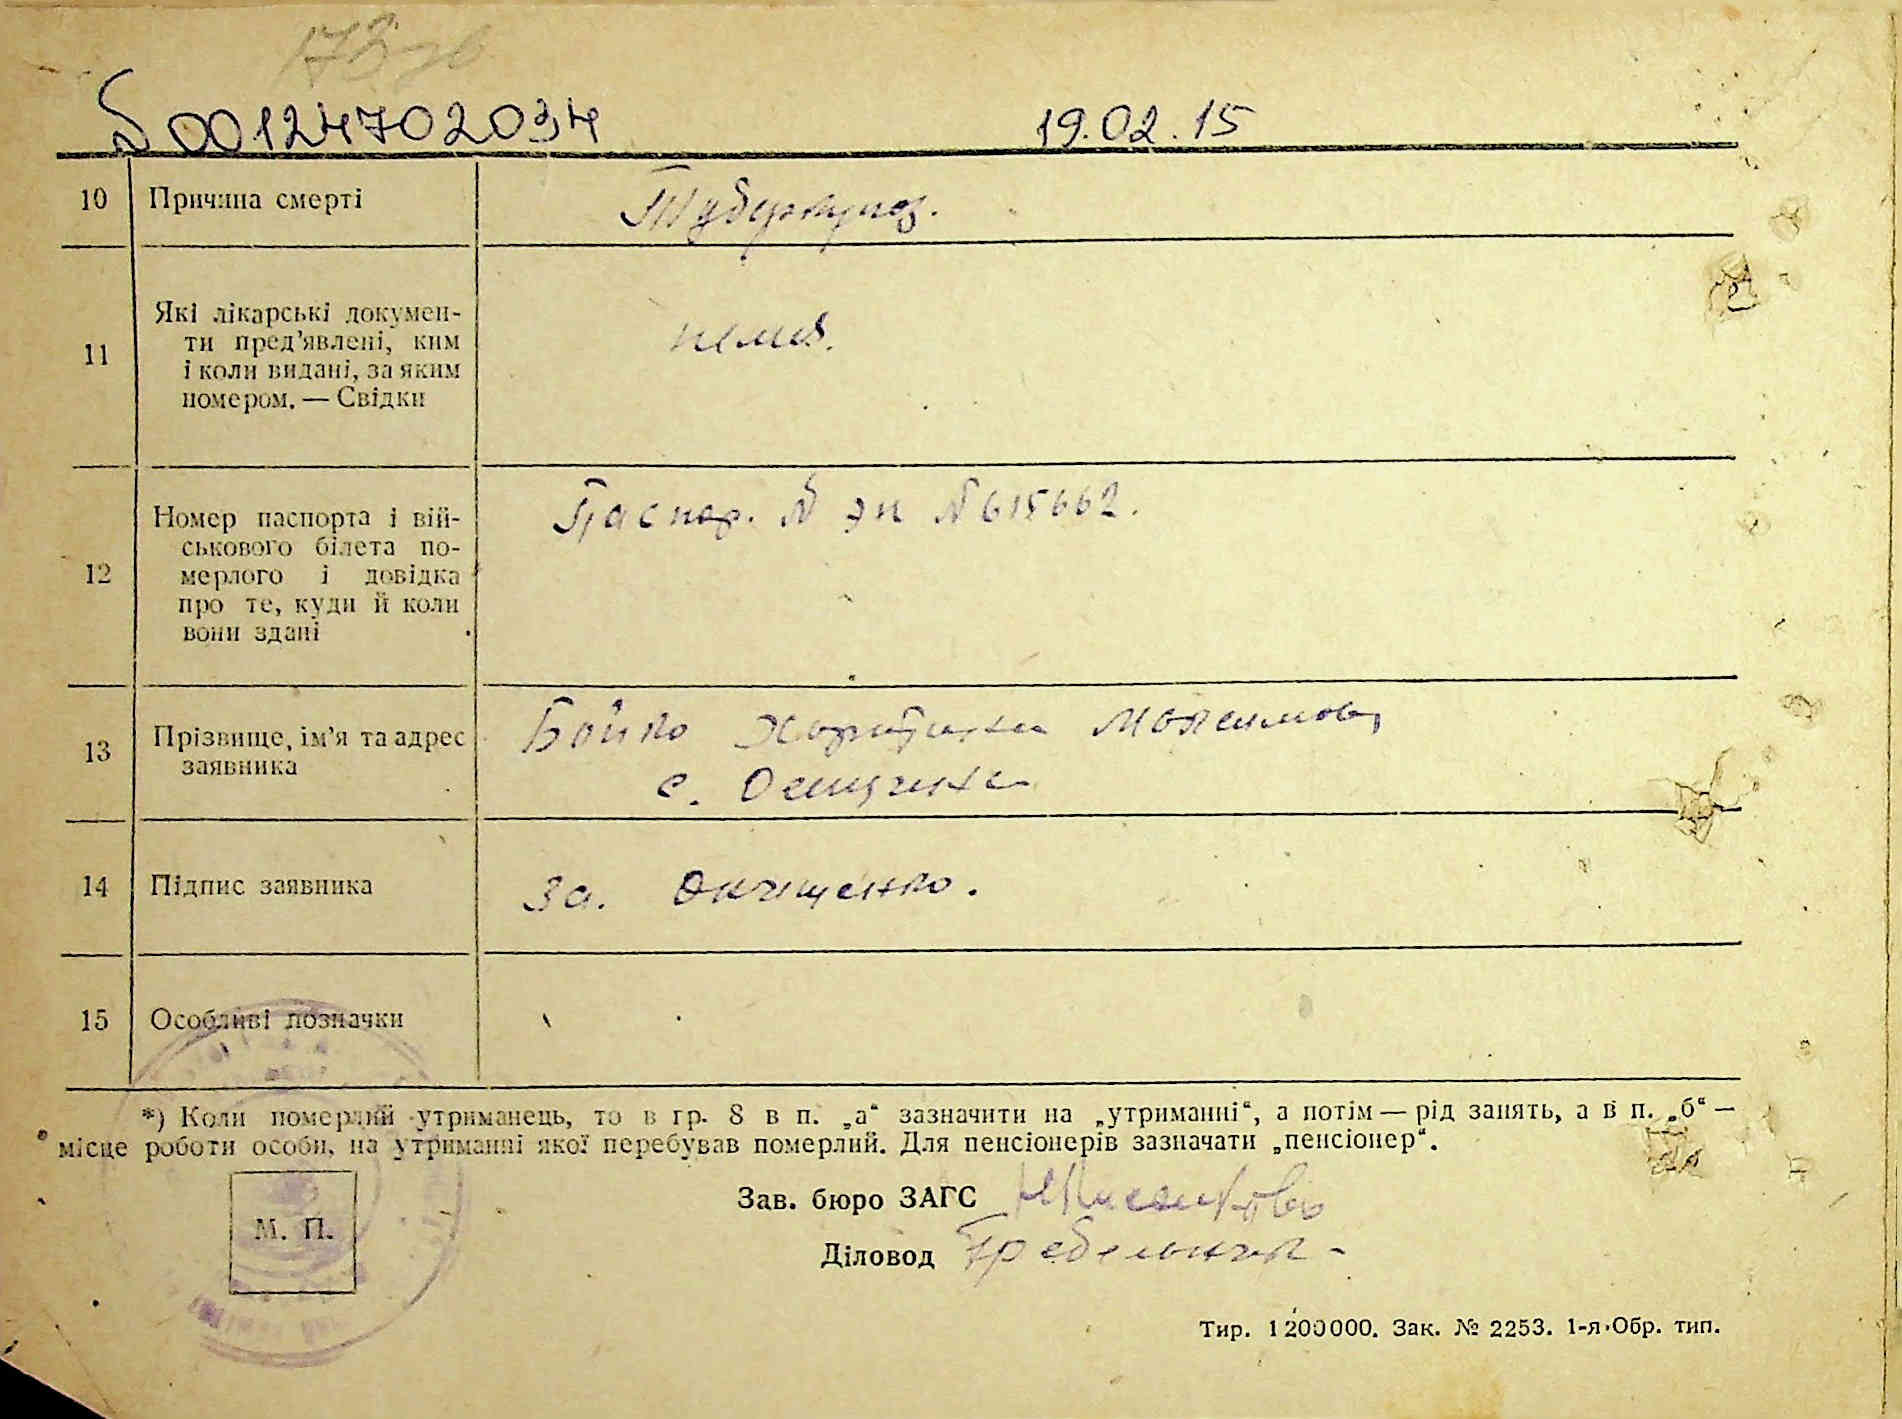 00124702034
19.02.15
10 Причина смерті Туберкулоз.
11 Які лікарські докумен-
ти пред'явлені, ким
і коли видані, за яким
номером. — Свідки
нема.
12 Номер паспорта і вій-
ськового білета по-
мерлого і довідка
про те, куди й коли
вони здані
Паспор. № эп № 615662.
13 Прізвище, ім'я та адрес
заявника
Бойко Максимов
с.
14 Підпис заявника За. Онищенко.
15 Особливі позначки
*) Коли померлий утриманець, то в гр. 8 в п. „а“ зазначити на „утриманні“, а потім — рід занять, а в п. „б“ —
місце роботи особи, на утриманні якої перебував померлий. Для пенсіонерів зазначати „пенсіонер“.
Зав. бюро ЗАГС
М. П.
Діловод Гребельная
Тир. 1200000. Зак. № 2253. 1-я Обр. тип.